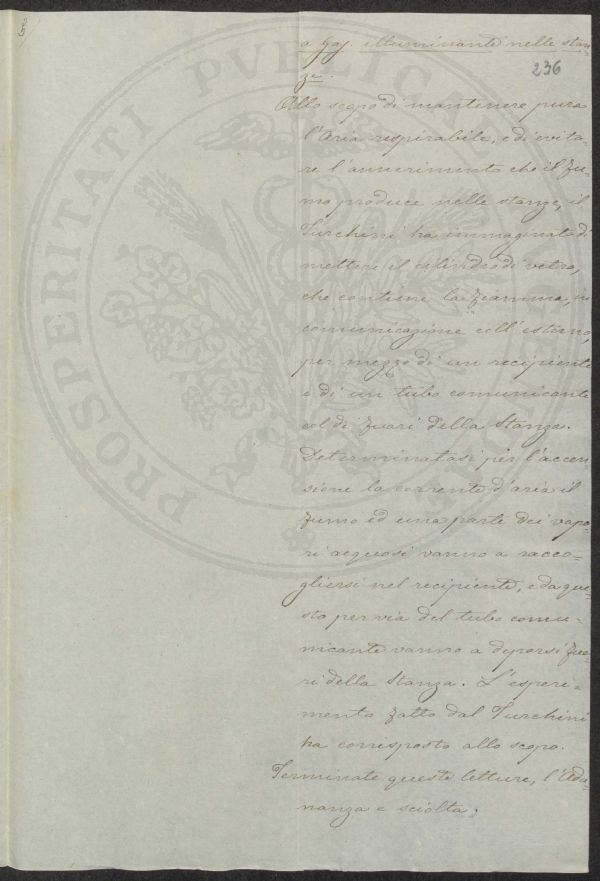 a Gas illuminante nelle stan-
236
ze.
Allo scopo di mantenere pura
l'Aria respirabile, e di evita-
re l'annerimento che il fu-
mo produce nelle stanze, il
Turchini ha immaginato di
mettere il cilindro di vetro,
che contiene la fiamma, in
comunicazione coll'esterno,
per mezzo di un recipiente
e di un tubo comunicante
col di fuori della Stanza.
Determinatasi per l'accen
sione la corrente d'aria il
fumo ed una parte dei vapo-
ri acquosi vanno a racco-
gliersi nel recipiente, e da que-
sto per via del tubo comu-
nicante vanno a deporsi fuo-
ri della Stanza. L'esperi-
mento fatto dal Turchini
ha corrisposto allo scopo.
Terminate queste letture, l'Adu-
nanza è sciolta;
PROSPERITATI PVBLICAE